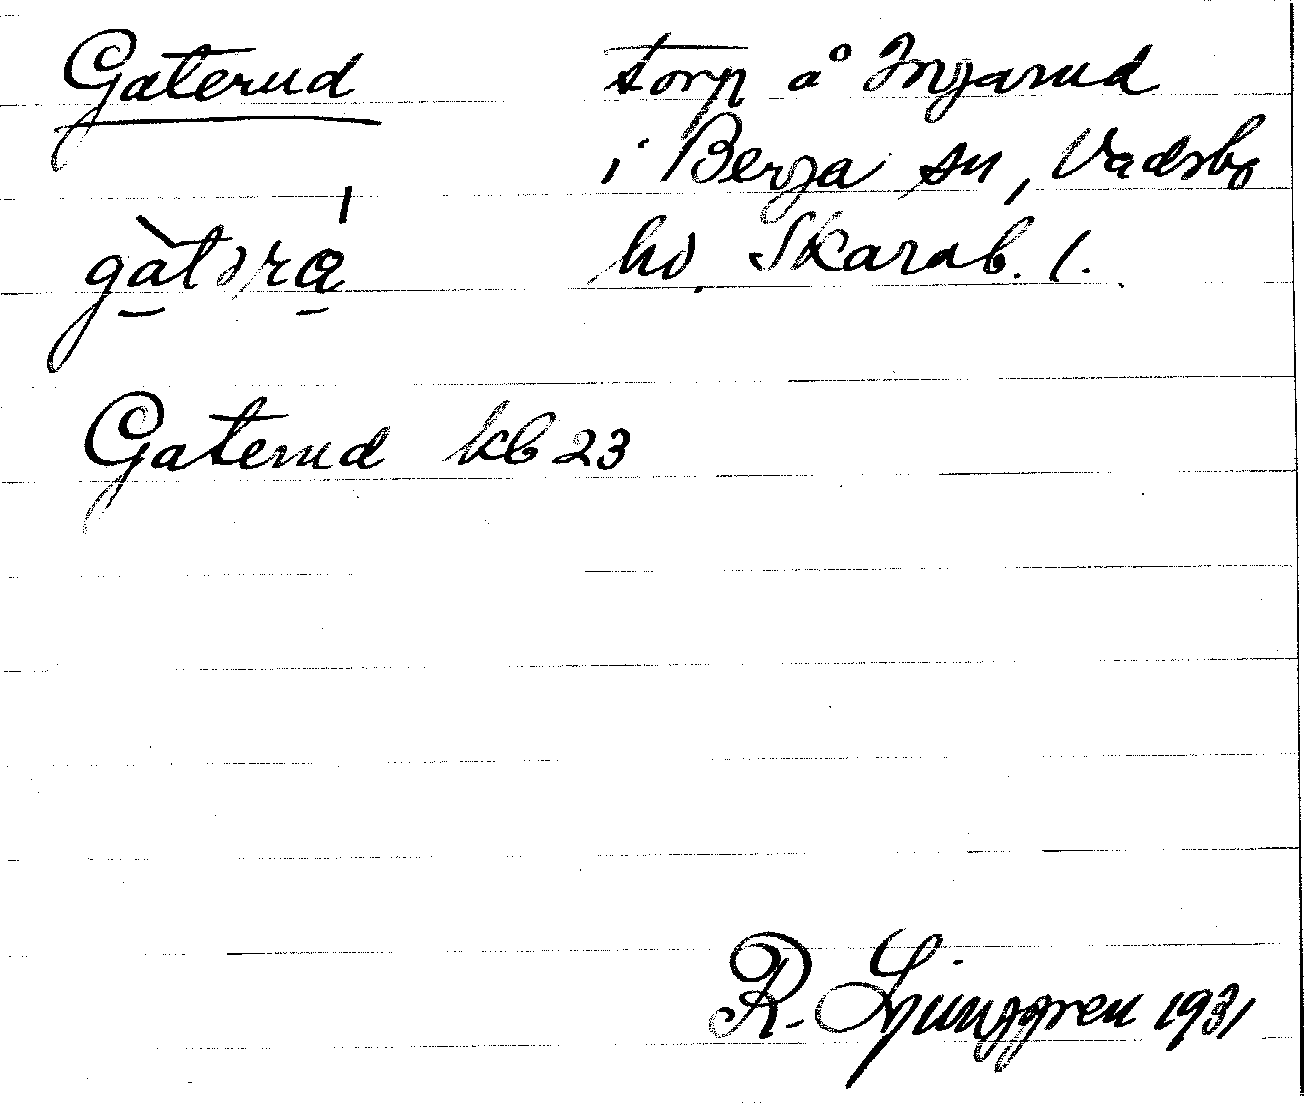 Gaterud torp å Ingarud
i Berga sn, Vadsbo
gàtəra̍ hd. Skarab. l.
Gaterud kb 23
R. Ljunggren 1931